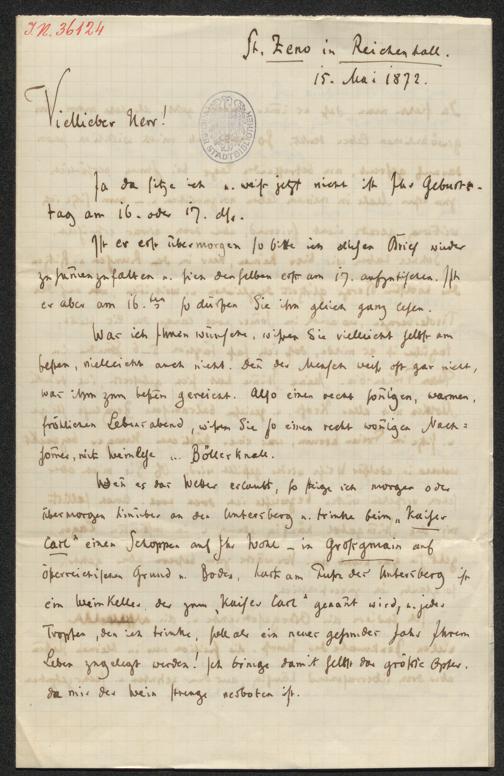 J.N. 36124
St. Zeno in Reichenhall.
15. Mai 1872.
Viellieber Herr!
Ja da sitze ich u. weiß jetzt nicht ist Ihr Geburts-
tag am 16. oder 17. ds.
Ist er erst übermorgen so bitte ich diesen Brief wieder
zusam̄enzufalten u. sien denselben erst am 17. aufzutischen. Ist
er aber am 16.ten so dürfen Sie ihn gleich ganz lesen.
Was ich Ihnen wünsche, wissen Sie vielleicht selbst am
besten, vielleicht auch nicht. Den̄ der Mensch weiß oft gar nicht,
was ihm zum besten gereicht. Also einen recht son̄igen, warmen,
fröhlichen Lebensabend, wissen Sie so einen recht won̄igen Nach=
som̄er, mit Weinlese u. Böllerknall.
Wen̄ es das Wetter erlaubt, so steige ich morgen oder
übermorgen hinüber an den Untersberg u. trinke beim „Kaiser
Carl" einen Schoppen auf Ihr Wohl – in Großgmain auf
österreichischen Grund u. Boden, hart am Fuße des Untersberg ist
ein Weinkeller, der zum „Kaiser Carl" genan̄t wird, u. jeder
Tropfen, den ich trinke, soll als ein neues gesundes Jahr Ihrem
Leben zugelegt werden! Ich bringe damit selbst das größte Opfer.
da mir der Wein strenge verboten ist.